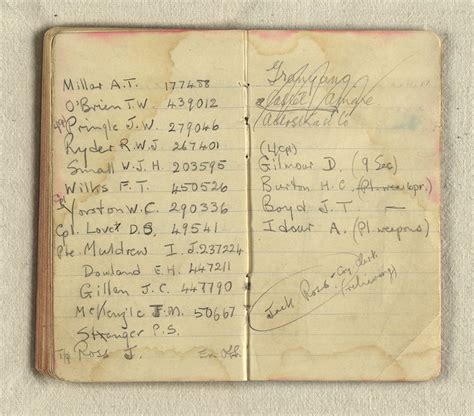 Millar A.T. 177488
O'Brien T.W. 439012
Pringle J.W. 279046
Ryder R.W.J. 267401
Small W.J.H. 203595
Wilks F.T. 450526
Yorston W.C. 290336
Cpl. Lovet D.S. 49541
Pte Muldrew I.J. 237224
Dowland E.H. 447211
Gillen J.C. 447790
McKenzie J.M. 50667
Stranger P.S.
Ross J.
(4 Cpl)
Gilmour D. (9 Sec)
Burton H.C.
Boyd J.T. —
Idour A. (Pl. weapons)
Jack Ross